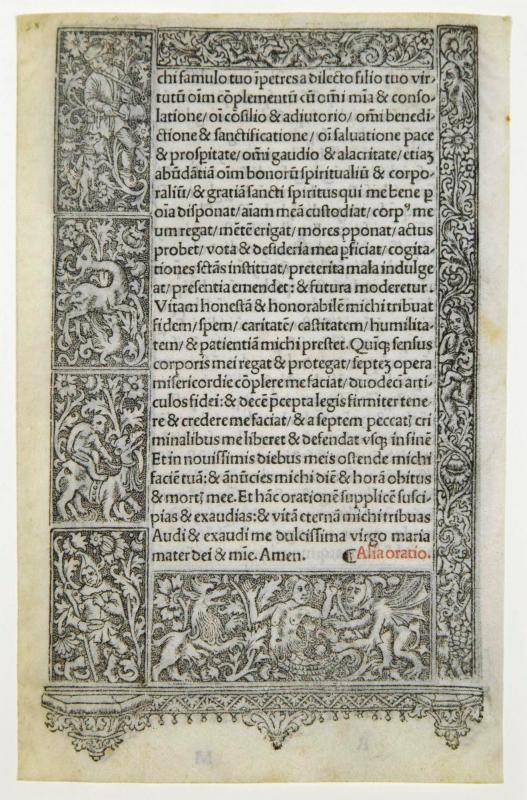 chi famulo tuo īpetres a dilecto filio tuo vir-
tutū oīm cōplementū cū om̄i mīa & conso-
latione/ oī cōsilio & adiutorio/ om̄i benedi-
ctione & sanctificatione/ oī saluatione pace
& prosperitate/ om̄i gaudio & alacritate/ etiaʒ
abūdātiā oīm bonorū spiritualiū & corpo-
raliū/ & gratiā sancti spiritus qui me bene ꝑ
oīa disponat/ aīam meā custodiat/ corpꝰ me
um regat/ mētē erigat/ mores ꝓponat/ actus
probet/ vota & desideria mea ꝑficiat/ cogita-
tiones sctās instituat/ preterita mala indulge
at/ presentia emendet: & futura moderetur.
Vitam honestā & honorabilē michi tribuat
fidem/ spem/ caritatē/ castitatem/ humilita-
tem/ & patientiā michi prestet. Quīqꝫ sensus
corporis mei regat & protegat/ septeʒ opera
misericordie cōplere me faciat/ duodeci arti-
culos fidei: & decē p̄cepta legis firmiter tene-
re & credere me faciat/ & a septem peccatꝭ cri
minalibus me liberet & defendat vsqꝫ in finē
Et in nouissimis diebus meis ostende michi
faciē tuā: & ānūcies michi diē & horā obitus
& mortꝭ mee. Et hāc orationē supplicē susci-
pias & exaudias: & vitā eternā michi tribuas
Audi & exaudi me dulcissima virgo maria
mater dei & mīe. Amen. ¶Alia oratio.